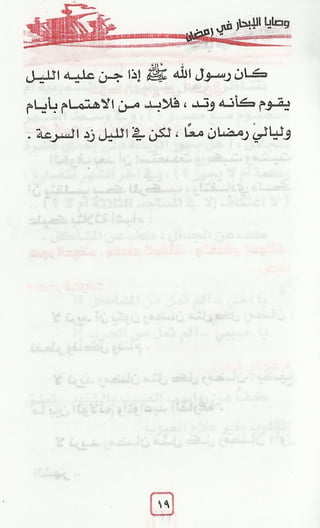 وصايا الإبحار في رمضان
كان رسول الله ﷺ إذا جن عليه الليل
يقوم كأنه وتد ، فلابد من الاهتمام بأيام
وليالي رمضان معًا ، لكن في الليل زد السرعة .
١٩